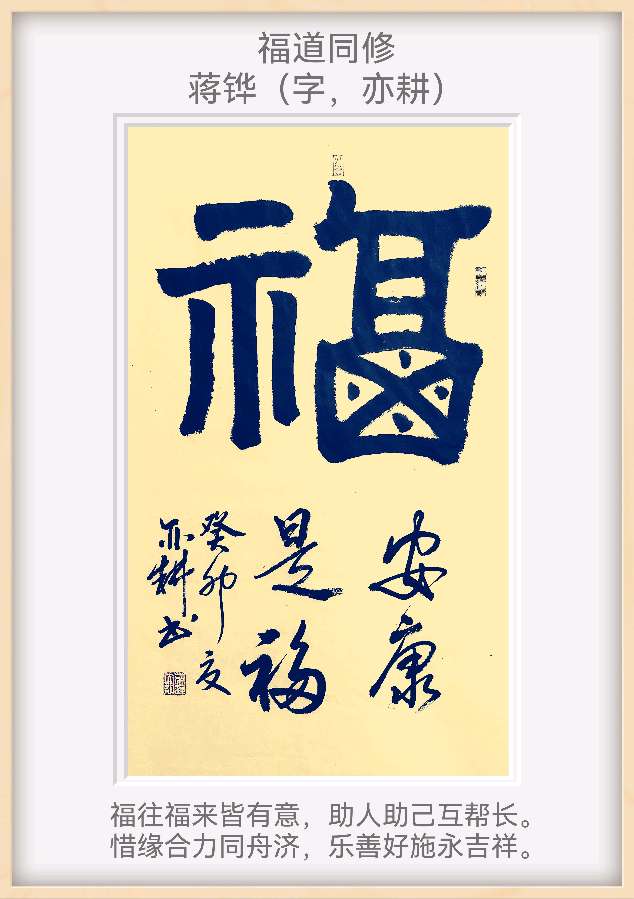 福道同修
蒋铧（字，亦耕）
福
安康
是福
癸卯夏
亦耕书
福往福来皆有意，助人助己互帮长。
惜缘合力同舟济，乐善好施永吉祥。